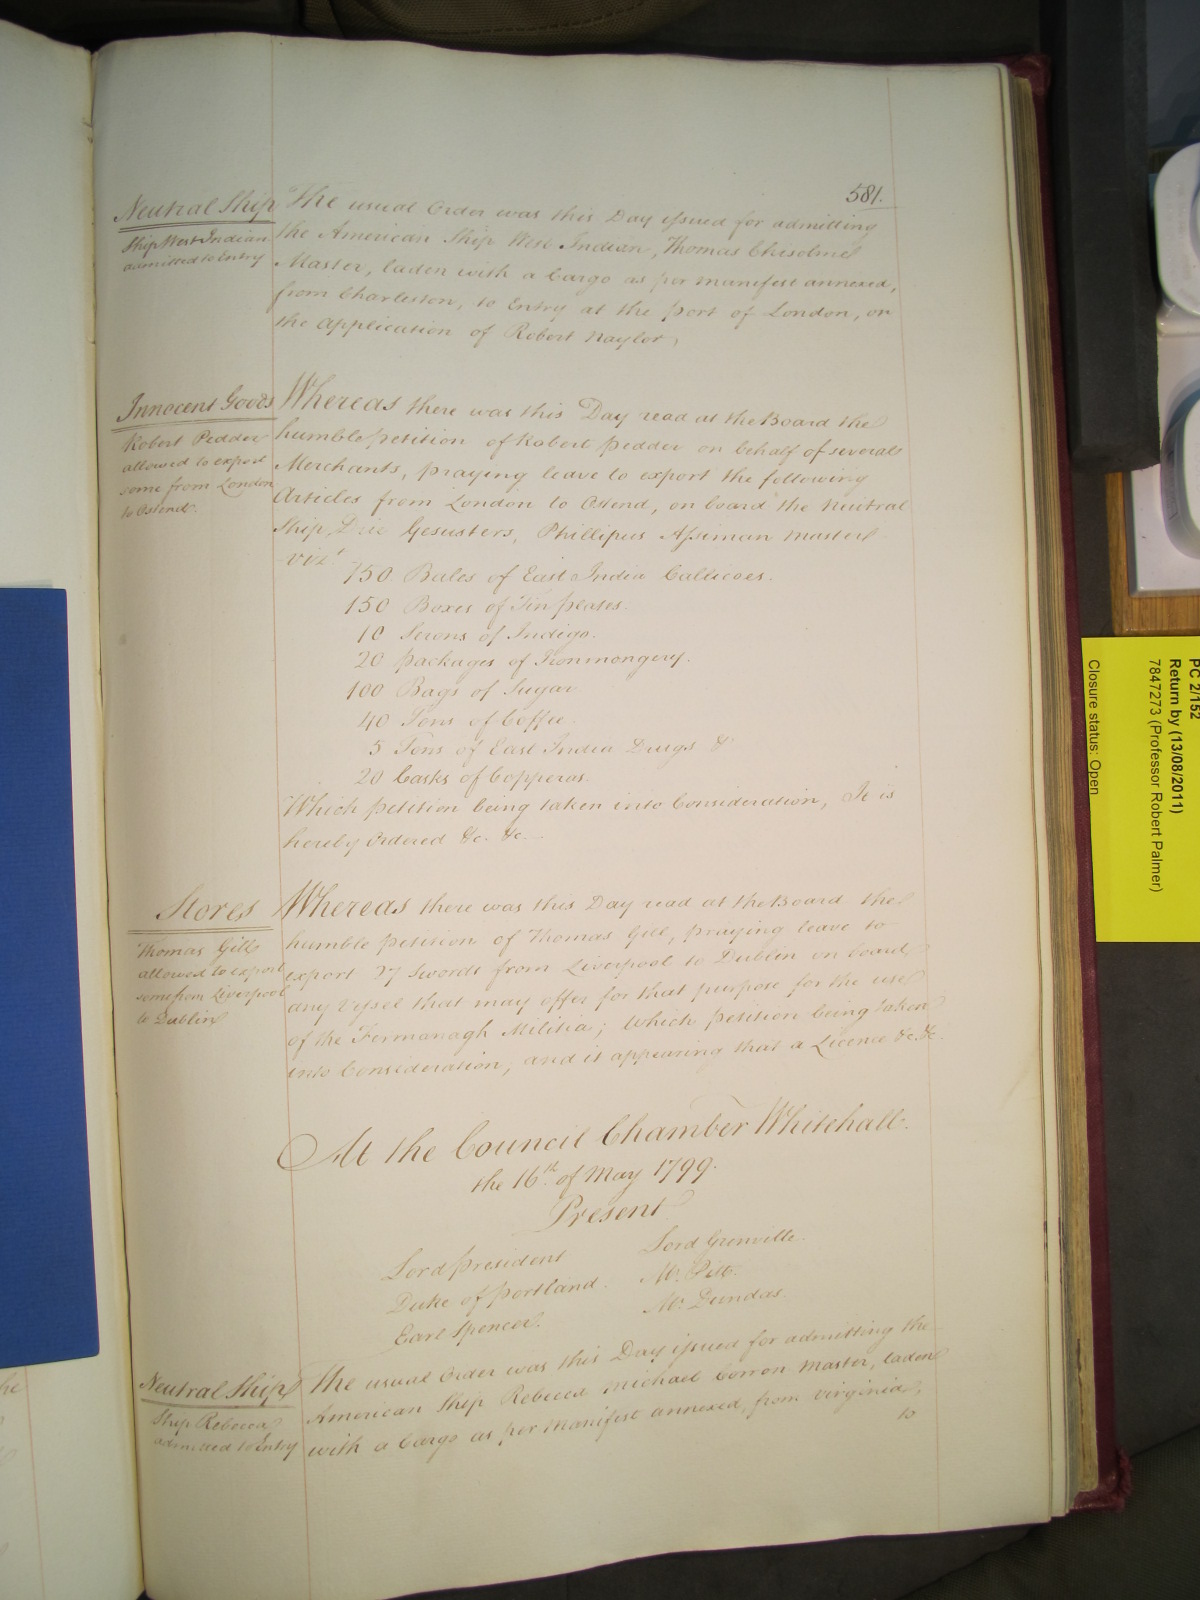 581.
Neutral Ship
Ship West Indian
admitted to Entry
The usual Order was this Day issued for admitting
the American Ship West Indian, Thomas Chisolme
Master, laden with a Cargo as per manifest annexed,
from Charleston, to Entry at the port of London, on
the application of Robert Naylor,
Innocent Goods
Robert Pedder
allowed to export
some from London
to Ostend.
Whereas there was this Day read at the Board the
humble petition of Robert Pedder on behalf of several
Merchants, praying leave to export the following
Articles from London to Ostend, on board the Neutral
Ship, Die Gesusters, Phillipus Assiman master
vizt
750 Bales of East India Callicoes.
150 Boxes of Tin plates.
10 Serons of Indigo.
20 packages of Ironmongery.
100 Bags of Sugar
40 Tons of Coffee.
5 Tons of East India Drugs &
20 Casks of Copperas.
Which petition being taken into Consideration, It is
hereby Ordered &c. &c.
Stores
Thomas Gill
allowed to export
some from Liverpool
to Dublin
Whereas there was this Day read at the Board the
humble petition of Thomas Gill, praying leave to
export 27 Swords from Liverpool to Dublin on board
any Vessel that may offer for that purpose for the use
of the Fermanagh Militia; Which petition being taken
into Consideration, and it appearing that a Licence &c. &c.
At the Council Chamber Whitehall.
the 16th of May 1799.
Present
Lord President
Duke of Portland.
Earl Spencer.
Lord Grenville.
Mr. Pitt.
Mr. Dundas.
Neutral Ship
Ship Rebecca
admitted to Entry
The usual Order was this Day issued for admitting the
American Ship Rebecca Michael Corron Master, laden
with a Cargo as per Manifest annexed, from Virginia,
to
PC 2/152
Return by (13/08/2011)
7847273 (Professor Robert Palmer)
Closure status: Open